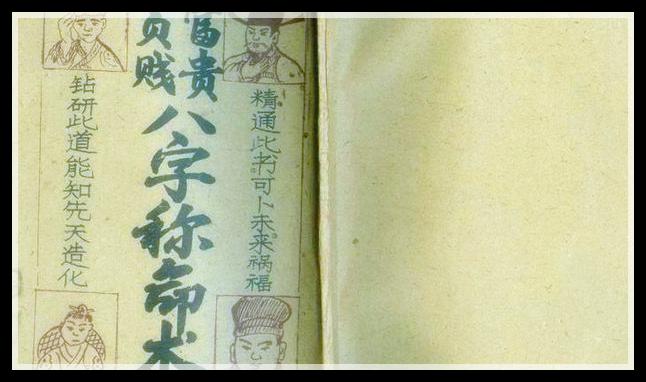 精通此书可卜未来祸福
富贵
贫贱
八字称命术
钻研此道能知先天造化